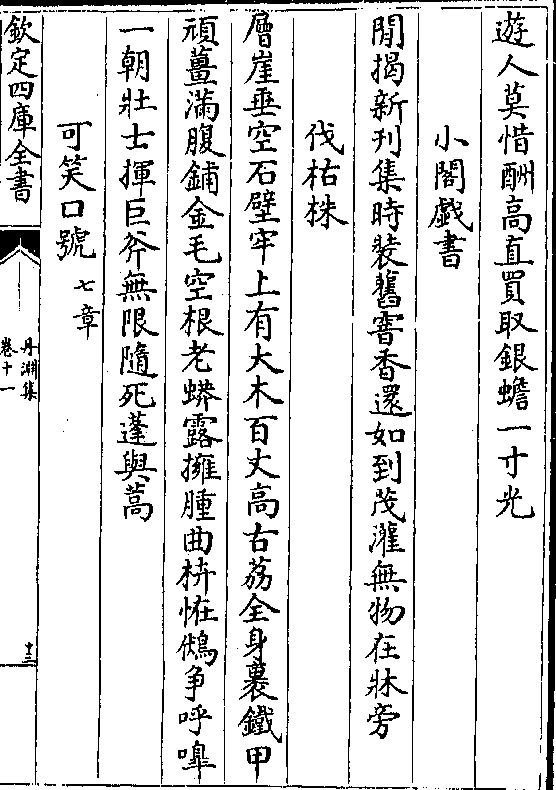 遊人莫惜酬高直買取銀蟾一寸光
小閣戯書
閒揭新刊集時裝舊宻香還如到茂灌無物在牀旁
伐枯株
層崖垂空石壁牢上有大木百丈高古荔全身裹鐵甲
頑薑滿腹鋪金毛空根老蟒露擁腫曲枿恠鵂争呼嘷
一朝壯士揮巨斧無限隨死蓬與蒿
可笑口號七章
欽定四庫全書
丹淵集
卷十一
十三